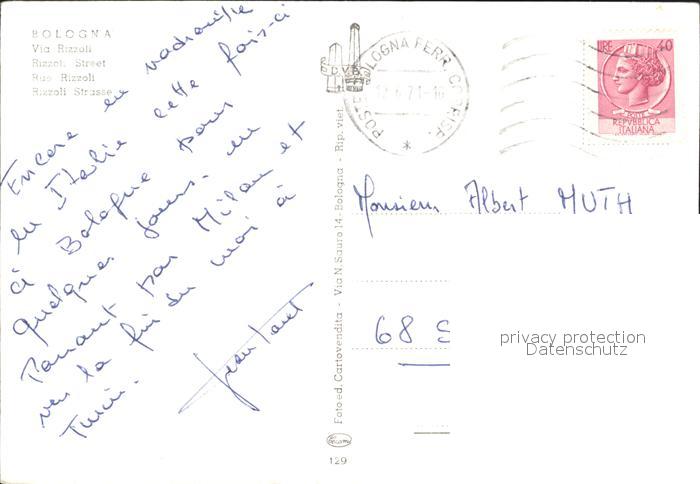 BOLOGNA
Via Rizzoli
Rizzoli Street
Rue Rizzoli
Rizzoli Strasse
Encore en vadrouille
en Italie cette fois-ci
à Bologne pour
quelques jours. en
Passant par Milan et
vers la fin du mois à
Turin.
D.V.B.
POSTE BOLOGNA FERR. CORRISP.
12.6.71-16
LIRE 40
POSTE
REPVBBLICA
ITALIANA
Fotoed. Cartovendita - Via N. Sauro 14 - Bologna - Rip. viet.
Monsieur Albert MUTH
68 S
privacy protection
Datenschutz
129